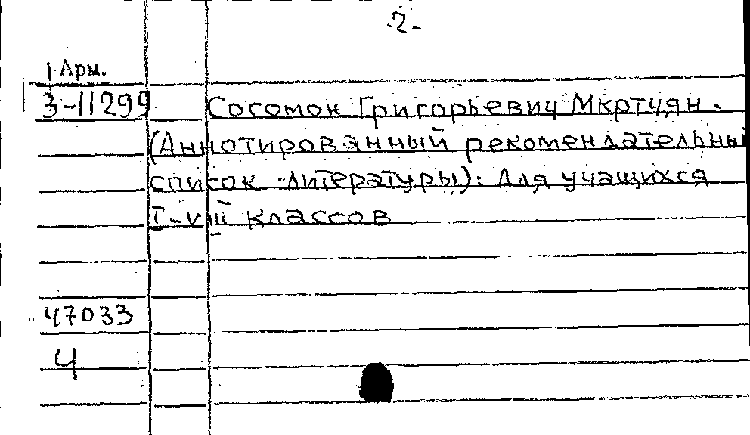 -2-
Арм.
3-11299 Согомон Григорьевич Мкртчян.
(Аннотированный рекомендательны
список литературы): Для учащихся
I-VIII классов
47033
Ч